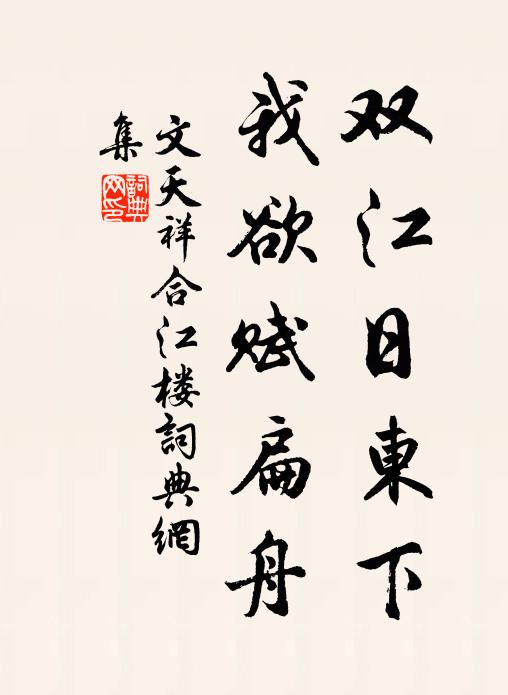 双江日東下
我欲赋扁舟
文天祥合江楼詞典網
集
詞典
网印